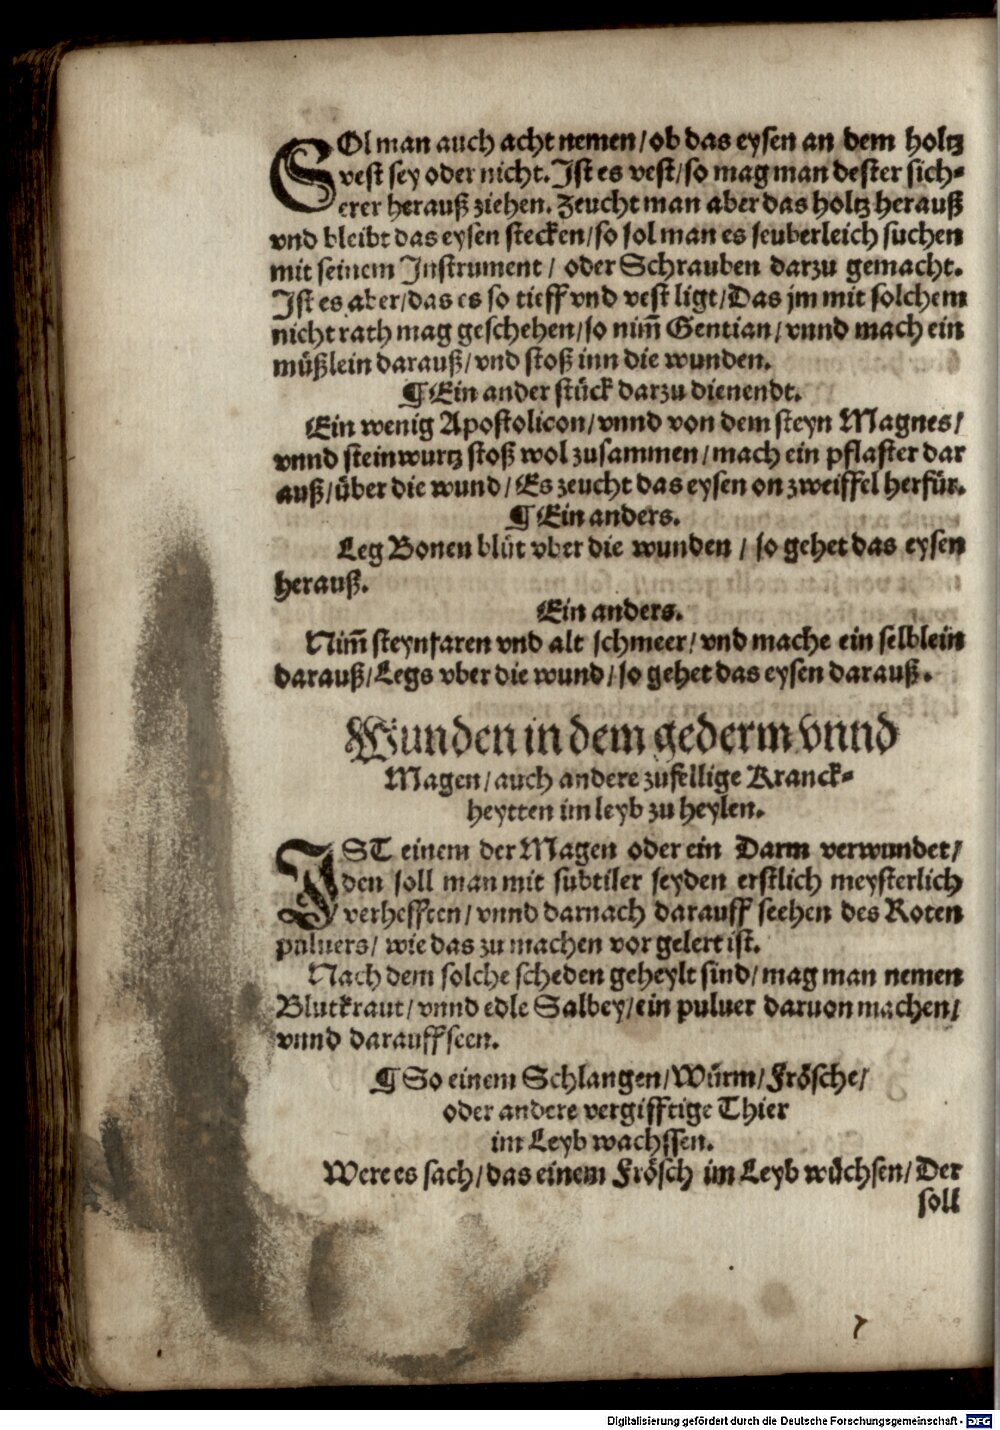 SOl man auch acht nemen/ob das eysen an dem holtz
vest sey oder nicht. Ist es vest/so mag man dester sich-
erer herauß ziehen. Zeucht man aber das holtz herauß
vnd bleibt das eysen stecken/so sol man es seuberleich suchen
mit seinem Instrument/ oder Schrauben darzu gemacht.
Ist es aber/das es so tieff vnd vest ligt/Das jm mit solchem
nicht rath mag geschehen/so nim̃ Gentian/vnnd mach ein
müßlein darauß/vnd stoß inn die wunden.
¶Ein ander stück darzu dienendt.
Ein wenig Apostolicon/vnnd von dem steyn Magnes/
vnnd steinwurtz stoß wol zusammen/mach ein pflaster dar
auß/über die wund/Es zeucht das eysen on zweiffel herfür.
¶Ein anders.
Leg Bonen blüt vber die wunden/ so gehet das eysen
herauß.
Ein anders.
Nim̃ steynfaren vnd alt schmeer/vnd mache ein selblein
darauß/Legs vber die wund/so gehet das eysen darauß.
Wunden in dem gederm vnnd
Magen/auch andere zufellige Kranck-
heytten im leyb zu heylen.
IST einem der Magen oder ein Darm verwundet/
den soll man mit subtiler seyden erstlich meysterlich
verhefften/vnnd darnach darauff seehen des Roten
puluers/wie das zu machen vor gelert ist.
Nach dem solche scheden geheylt sind/mag man nemen
Blutkraut/vnnd edle Salbey/ein puluer daruon machen/
vnnd darauff seen.
¶So einem Schlangen/Würm/Frösche/
oder andere vergifftige Thier
im Leyb wachssen.
Were es sach/das einem Frösch im Leyb wüchsen/Der
soll
Digitalisierung gefördert durch die Deutsche Forschungsgemeinschaft - DFG